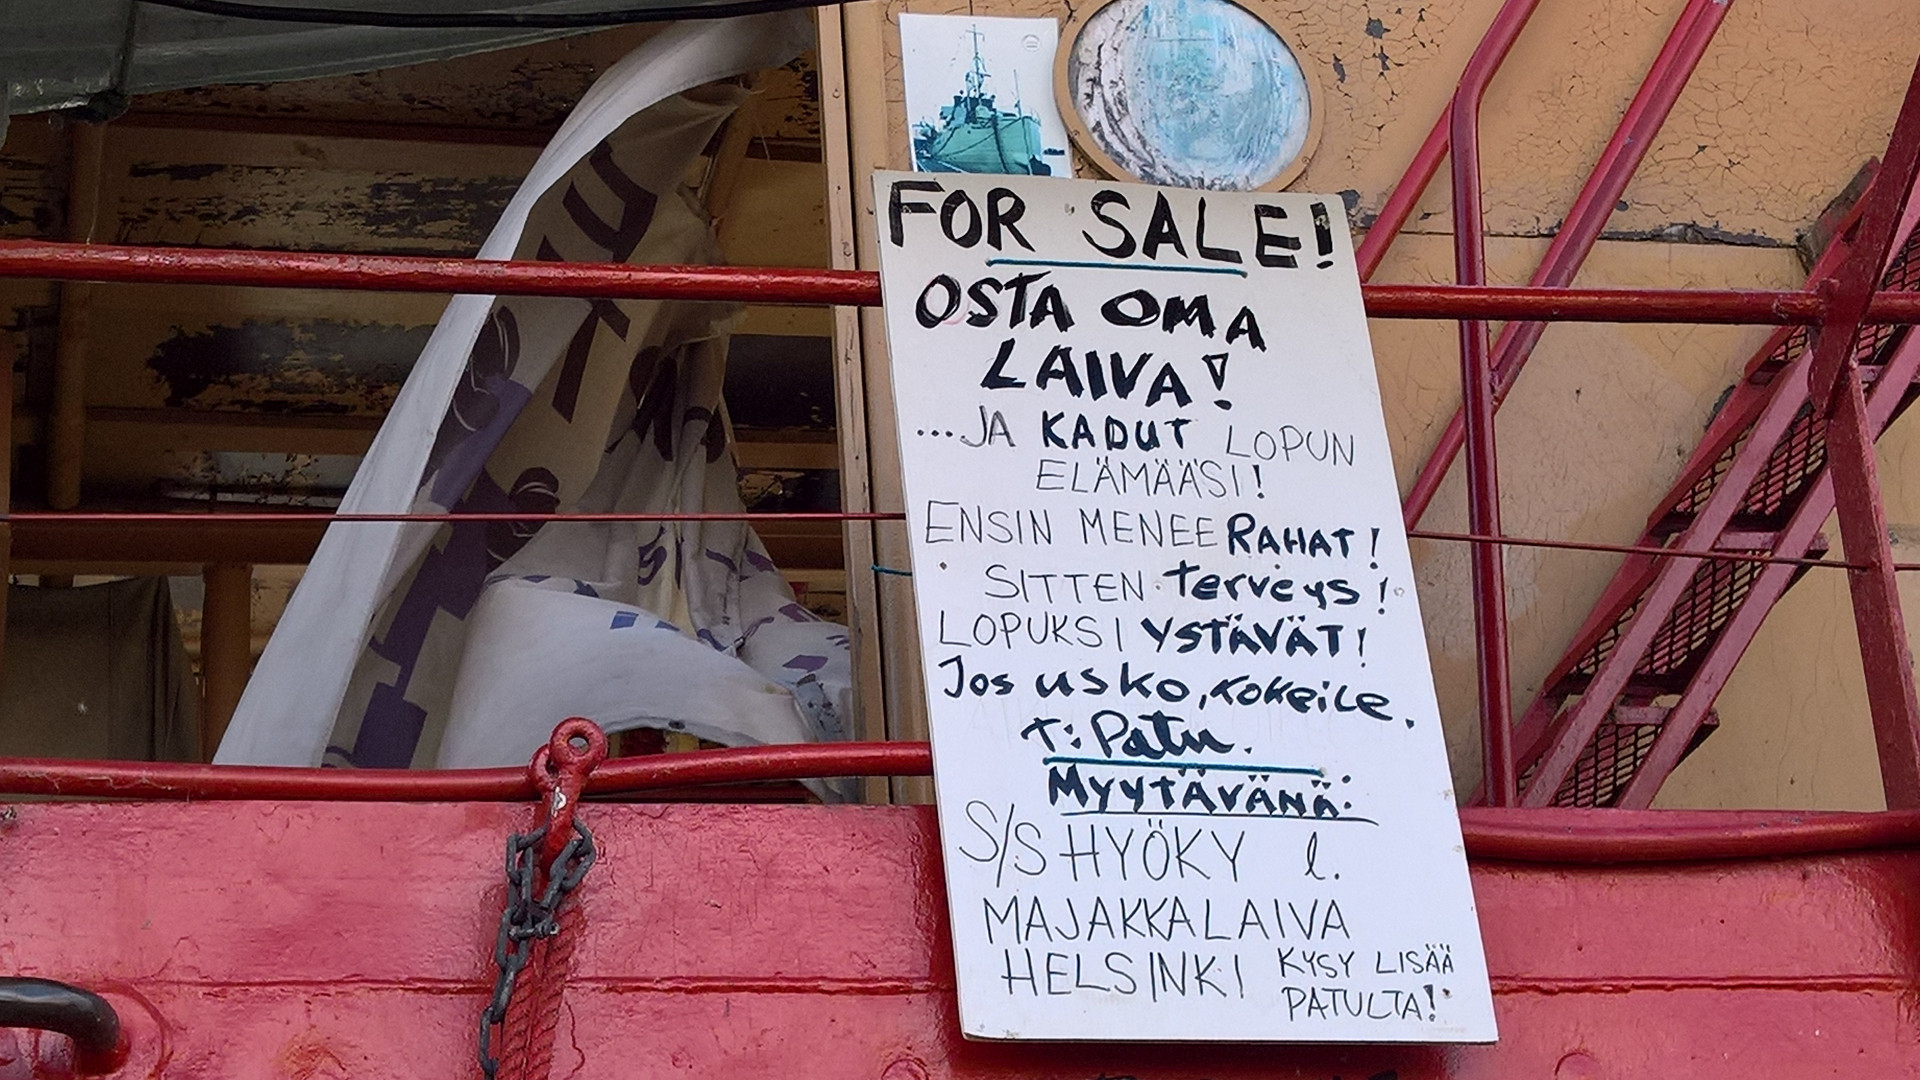 FOR SALE!
OSTA OMA
LAIVA!
...JA KADUT LOPUN
ELÄMÄÄSI!
ENSIN MENEE RAHAT!
SITTEN terveys!
LOPUKSI YSTÄVÄT!
Jos usko, kokeile.
T: Patu.
MYYTÄVÄNÄ:
S/S HYÖKY l.
MAJAKKALAIVA
HELSINKI KYSY LISÄÄ
PATULTA!